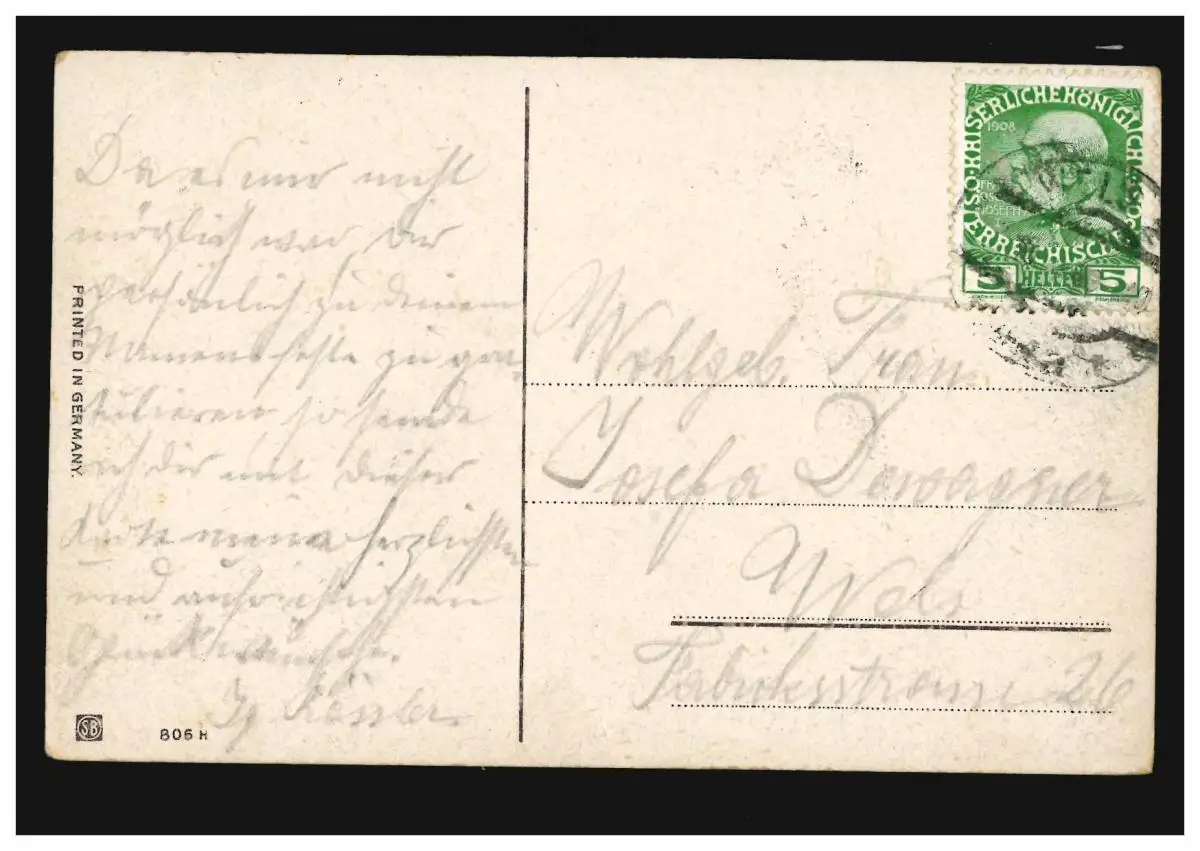 Da es mir nicht
möglich war dir
persönlich zu deinem
Namensfeste zu gra-
tulieren so sende
ich dir mit dieser
Karte meine herzlichsten
und aufrichtigsten
Glückwünsche.
Rössler
PRINTED IN GERMANY.
SB
806 H
KAISERLICHEKÖNIGLICHE
ÖSTERREICHISCHE
1908
JOSEPH
5 HELLER 5
Wohlgeb. Frau
Josefa
Wels
Fabriksstrasse 26